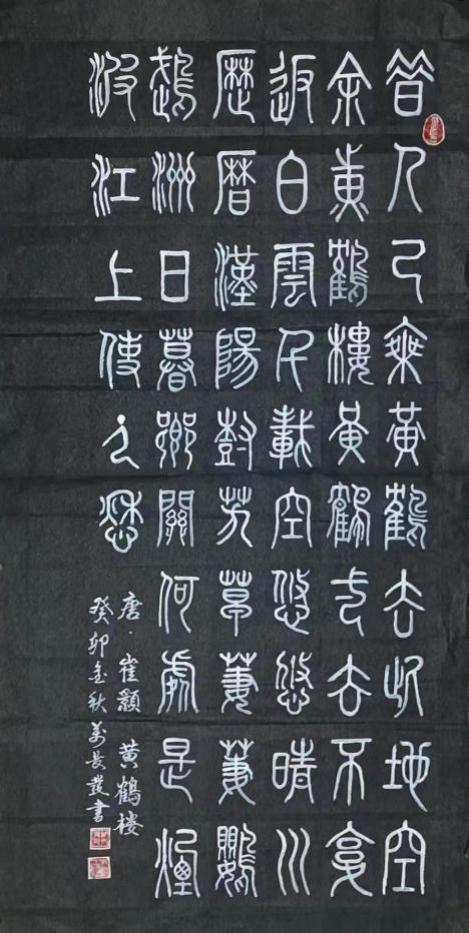 昔人已乘黃鶴去此地空
余黃鶴樓黃鶴弌去不复
返白雲千載空悠悠晴川
歷曆漢陽樹芳草萋萋鸚
鵡洲日暮鄉關何處是煙
波江上使人愁
唐·崔顥 黄鶴楼
癸卯金秋 萬長書